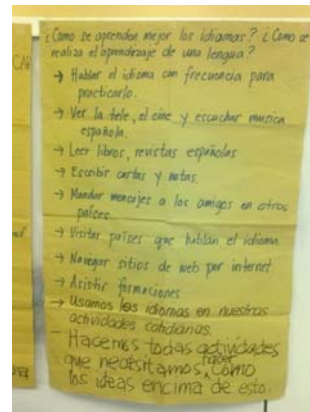 ¿Como se aprenden mejor los idiomas? ¿Como se
realiza el aprendizaje de una lengua?
→ Hablar el idioma con frecuencia para
practicarlo.
→ Ver la tele, el cine y escuchar musica
española.
→ Leer libros, revistas españolas
→ Escribir cartas y notas.
→ Mandar mensajes a los amigos en otros
países.
→ Visitar países que hablan el idioma
→ Navegar sitios de web por internet
→ Asistir formaciones
→ Usamos los idiomas en nuestras
actividades cotidianas.
- Hacemos todas actividades
que necesitamos hacer, como
los ideas encima de esto.
CAR